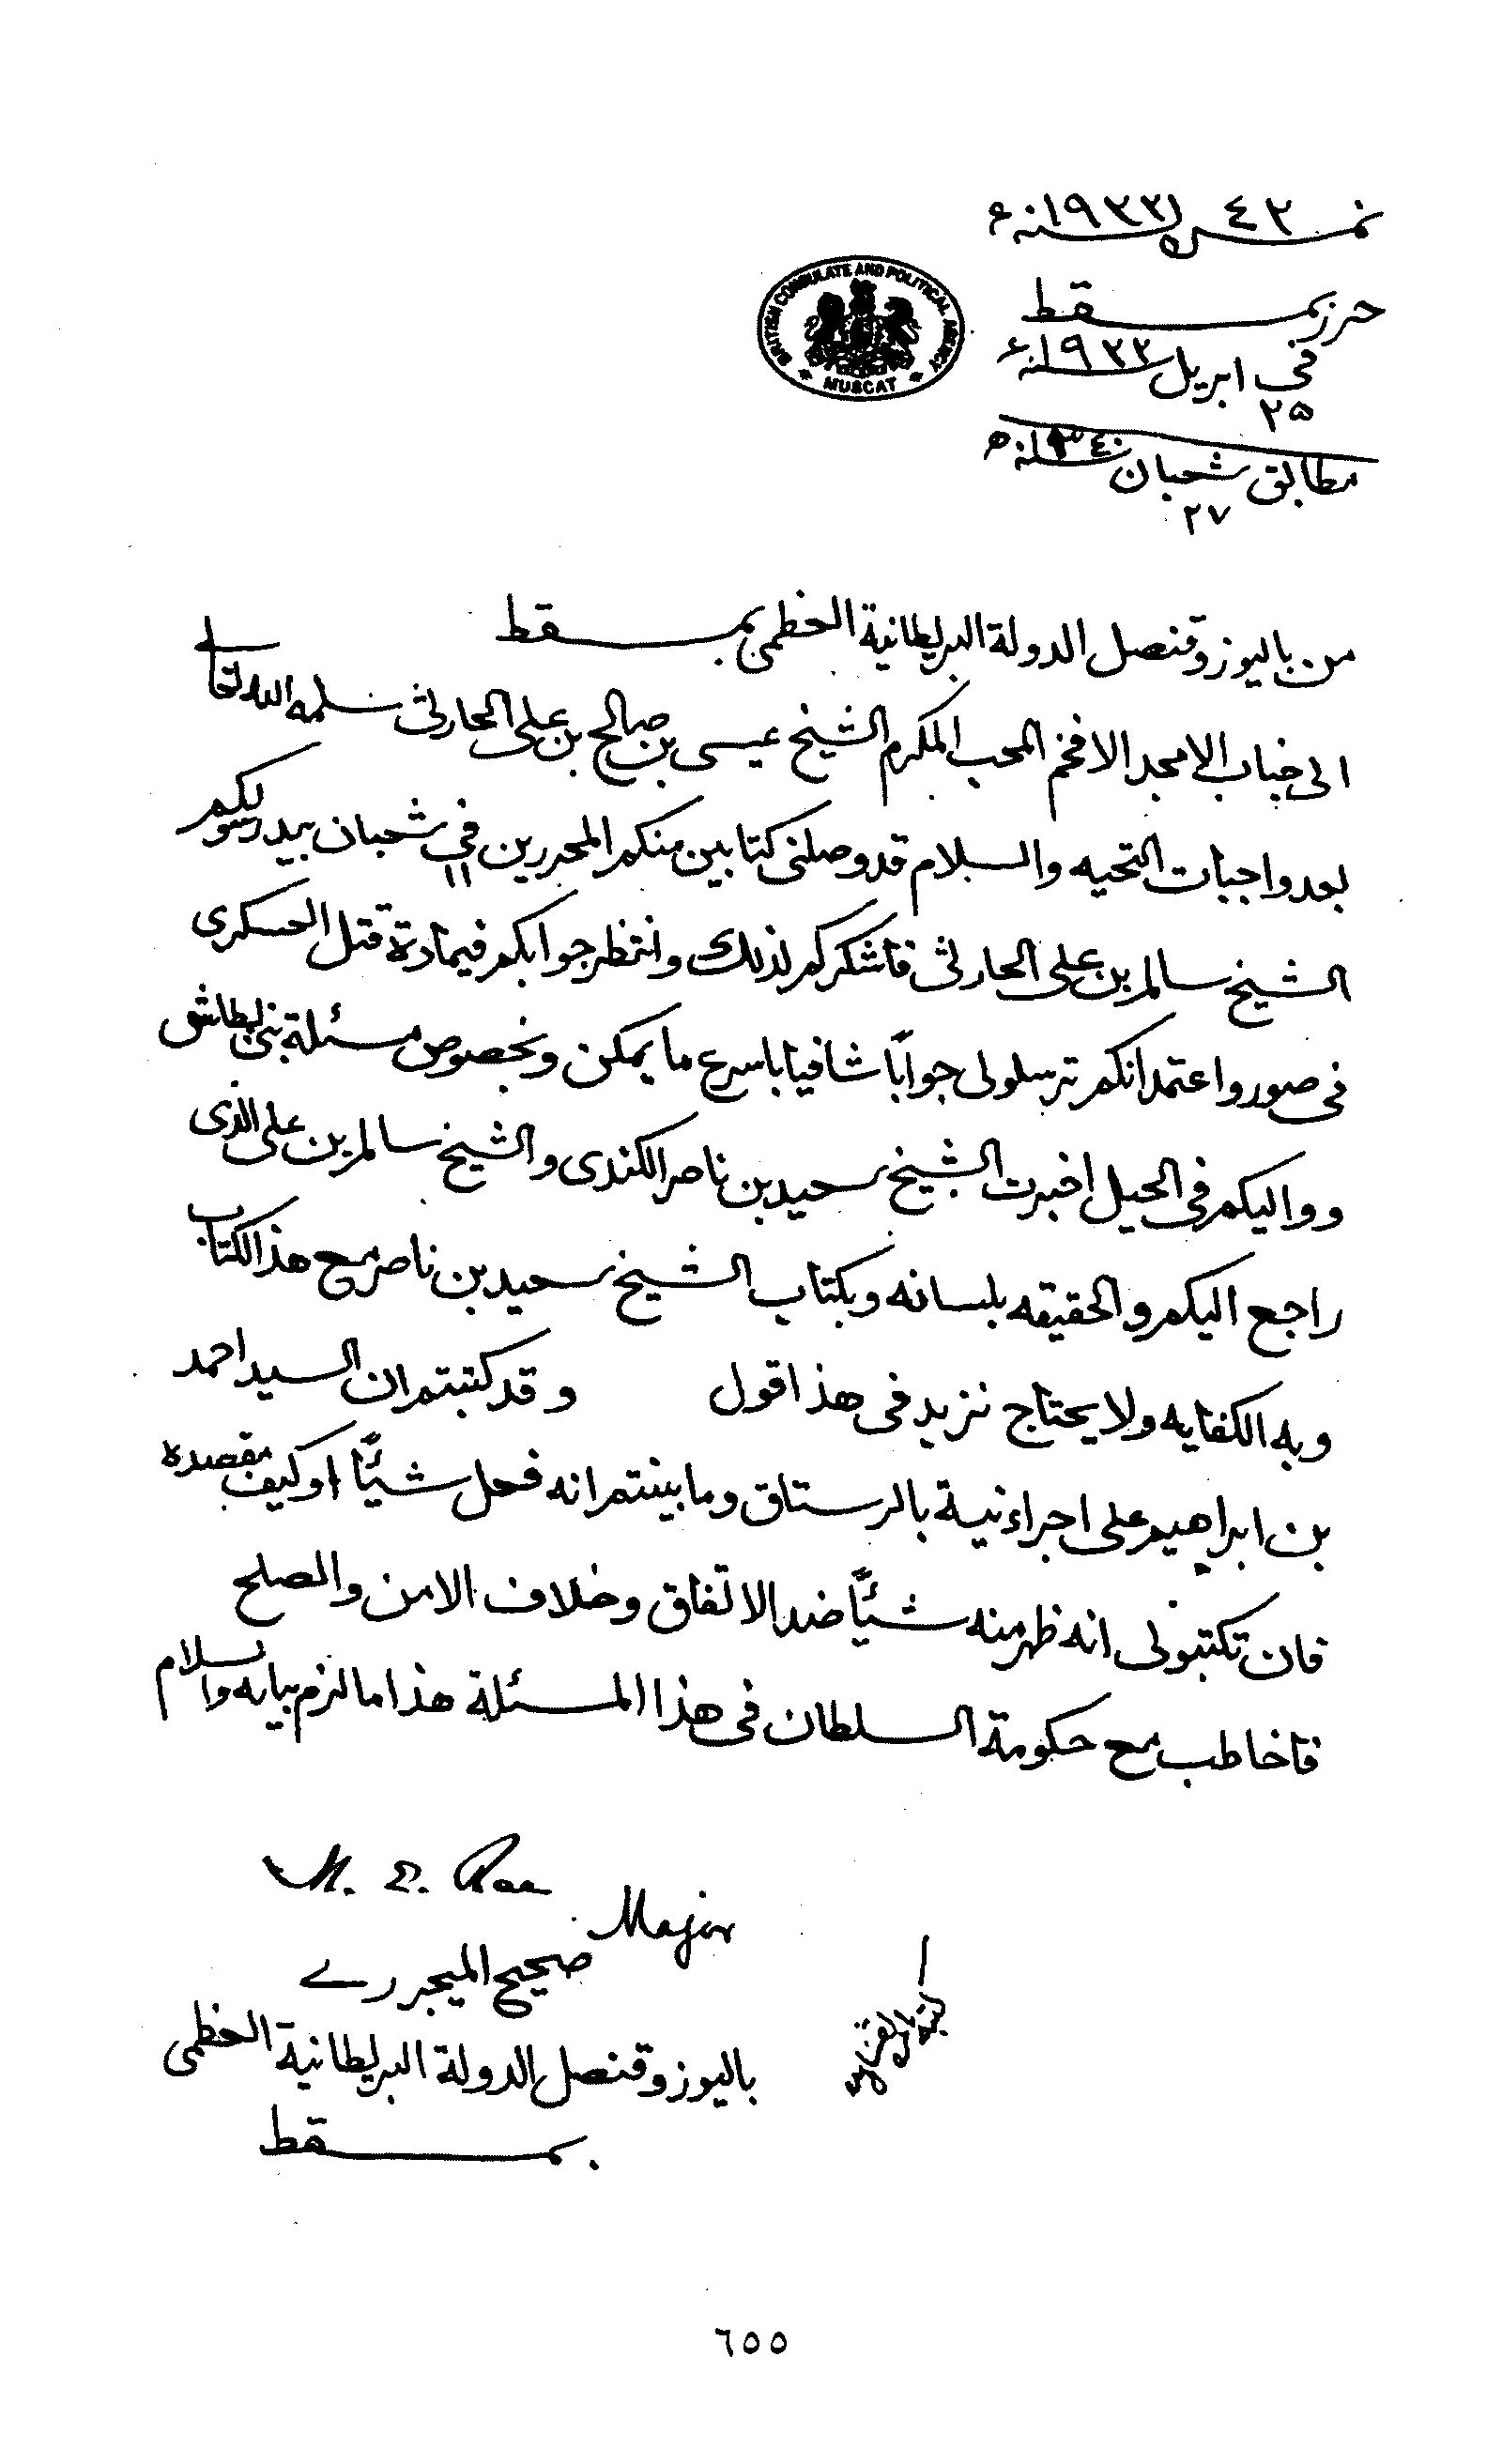 نمبر ٤٢ سنه ١٩٢٢ء
حرز بمسقط
في ٢٥ ابريل سنه ١٩٢٢ء
مطابق ٢٧ شعبان سنه ١٣٤٠ه
BRITISH CONSULATE AND POLITICAL AGENCY
MUSCAT
من باليوز وقنصل الدولة البريطانية العظمى بمسقط
الى جناب الامجد الافخم المحب المكرم الشيخ عيسى بن صالح بن على الحارثى سلمه الله تعالى
بعد واجبات التحيه والسلام قد وصلنى كتابين منكم المحررين في ١١ شعبان بيد رسولكم
الشيخ سالم بن على الحارثى فاشكركم لذلك وانتظر جوابكم فيمادة قتل العسكرى
فى صور واعتمد انكم ترسلو لى جوابًا شافيا باسرع ما يمكن وبخصوص مسئلة بنى بطاش
ووواليكم فى الحيل اخبرت الشيخ سعيد بن ناصر الكندى والشيخ سالم بن على الذى
راجع اليكم والحقيقه بلسانه وبكتاب الشيخ سعيد بن ناصر مع هذ الكتاب
وبه الكفايه ولا يحتاج نزيد فى هذ اقول وقد كتبتم ان السيد احمد
بن ابراهيم على اجراء نية بالرستاق وما بينتم انه فعل شيئًا او كيف مقصده
فان تكتبو لى انه ظهر منه شيئًا ضد الاتفاق وخلاف الامن والصلح
فاخاطب مع حكومة السلطان فى هذا المسئلة هذا ما لزم بيانه والسلام
M. E. Rae
Major
صحيح الميجر رے
باليوز وقنصل الدولة البريطانية العظمى
بمسقط
٦٥٥